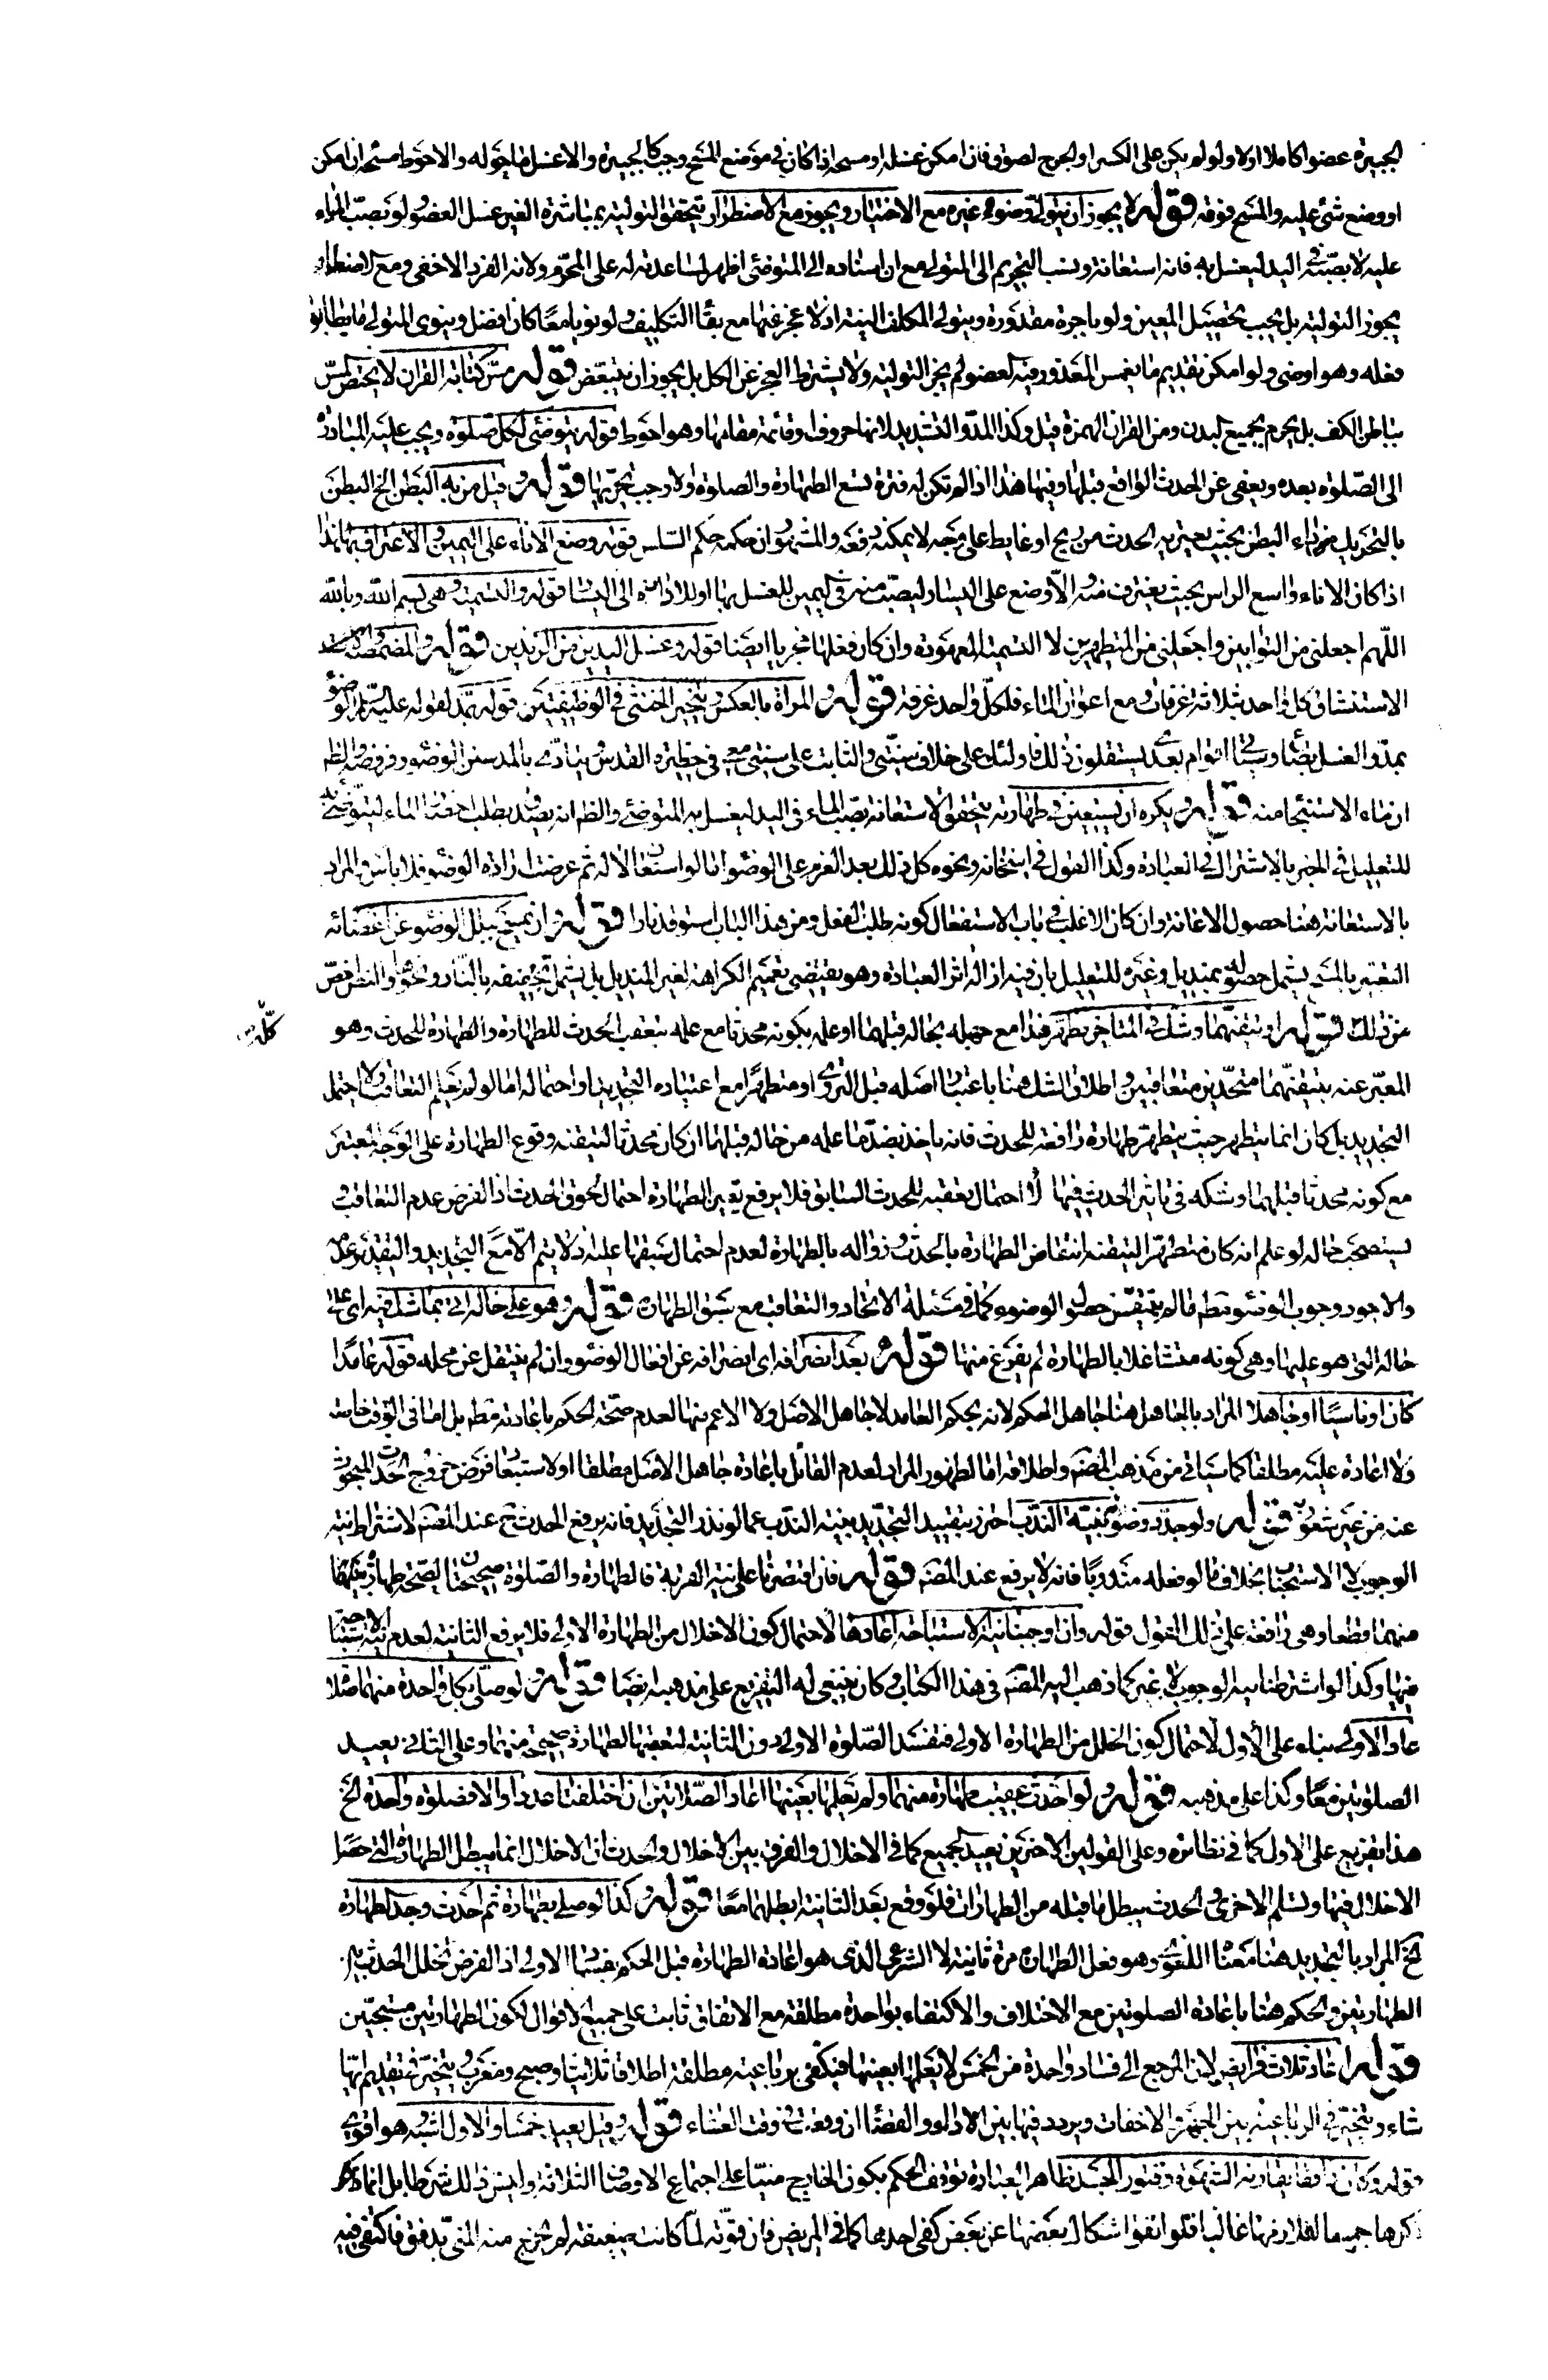 الجبيرة عضوا كاملا اولا ولو لم يكن على الكسر او الجرح لصوق فان امكن غسله او مسحه اذا كان في موضع المسح وجب كالجبيرة والا غسل ما حوله والاحوط مسحه ان امكن
او وضع شئ عليه والمسح فوقه قوله لا يجوز ان يتولى وضوءه غيره مع الاختيار ويجوز مع الاضطرار يتحقق التولية بمباشرة الغير غسل العضو ولو بصب الماء
عليه لا بصبه في اليد ليغسل به فانه استعانة ونسب التحريم الى المتولي مع ان اسناده الى المتوضئ اظهر لمساعدته له على المحرم ولانه الفرد الاخفى ومع الاضطرار
يجوز التولية بل يجب تحصيل المعين ولو باجرة مقدورة ويتولى المكلف النية اذ لا عجز عنها مع بقاء التكليف ولو نويا معا كان افضل وينوي المتولي ما يطابق
فعله وهو اوضى ولو امكن تقديم ما يغمس المعذور فيه العضو لم يجز التولية ولا يشترط العجز عن الكل بل يجوز ان يتبعض قوله مس كتابة القران لا يختص المس
بباطن الكف بل يحرم بجميع البدن ومن القران الهمزة قيل وكذا المد والتشديد لانها حروف او قائمة مقامها وهو احوط قوله يتوضئ لكل صلوة ويجب عليه المبادرة
الى الصلوة بعده ويعفى عن الحدث الواقع قبلها وفيها هذا اذا لم تكن له فترة تسع الطهارة والصلوة والا وجب تحريها قوله وقيل من به البطن الخ البطن
بالتحريك من داء البطن بحيث يعتريه الحدث من ريح او غايط على وجه لا يمكنه دفعه والمشهور ان حكمه حكم السلس قوله وضع الاناء على اليمين والاغتراف بها هذا
اذا كان الاناء واسع الراس بحيث يغترف منه والا وضع على اليسار ليصب منه في اليمين للغسل بها او للادارة الى اليسار قوله والتسمية وهي بسم الله وبالله
اللهم اجعلني من التوابين واجعلني من المتطهرين لا التسمية المعهودة وان كان فعلها مجزيا ايضا قوله وغسل اليدين من الزندين قوله والمضمضة والاستنشاق
الاستنشاق كل واحد بثلاثة غرفات ومع اعواز الماء فلكل واحد غرفة قوله والمراة بالعكس ويتخير الخنثى في الوظيفتين قوله بمد لقوله عليه السلم الوضوء
بمد والغسل بصاع وسياتي اقوام بعدي يستقلون ذلك فاولئك على خلاف سنتي والثابت على سنتي معي في حظيرة القدس ويتادى بالمد سنن الوضوء وفروضه والظ
ان ماء الاستنجا منه قوله ويكره ان يستعين في طهارته يتحقق الاستعانة بصب الماء في اليد ليغسل به المتوضئ والظ انه يصدق بطلب احضار الماء ليتوضئ به
للتعليل في الخبر بالاشتراك في العبادة وكذا القول في اسخانه ونحوه كل ذلك بعد العزم على الوضوء اما لو استعان لا له ثم عرضت ارادة الوضوء فلا باس والمراد
بالاستعانة هنا حصول الاعانة وان كان الاغلب في باب الاستفعال كونه طلب الفعل ومن هذا الباب استوقد نارا قوله وان يمسح بلل الوضوء عن اعضائه
التعبير بالمسح يشمل حصوله بمنديل وغيره للتعليل بان فيه ازالة اثر العبادة وهو يقتضي تعميم الكراهة لغير المنديل بل يشمل تجفيفه بالنار ونحوها والنص اخص
من ذلك كله قوله او تيقنهما وشك في المتاخر تطهر هذا مع جهله بحاله قبلهما او علمه بكونه محدثا مع علمه بتعقب الحدث للطهارة والطهارة للحدث وهو
المعبر عنه بتيقنهما متحدين متعاقبين واطلاق الشك هنا باعتبار اصله قبل التروي او متطهرا مع اعتياده التجديد او احتماله اما لو لم يعلم التعاقب ولا احتمل
التجديد بل كان انما يتطهر حيث يتطهر طهارة رافعة للحدث فانه ياخذ بضد ما علمه من حاله قبلهما ان كان محدثا لتيقنه وقوع الطهارة على الوجه المعتبر
مع كونه محدثا قبلهما وشكه في تاثير الحدث فيها لاحتمال تعقبه للحدث السابق فلا يرفع يقين الطهارة احتمال لحوق الحدث اذ الفرض عدم التعاقب
ليستصحب حاله لو علم انه كان متطهرا لتيقنه انتقاض الطهارة بالحدث وزواله بالطهارة لعدم احتمال سبقها عليه اذ لا يتم الا مع التجديد والتقدير عدمه
والاجود وجوب الوضوء مط ما لم يتيقن حصول الوضوء كما في مسئلة الاتحاد والتعاقب مع سبق الطهارة قوله وهو على حاله اتى بما شك فيه اي على
حاله التي هو عليها وهي كونه متشاغلا بالطهارة لم يفرغ منها قوله بعد انصرافه اي انصرافه عن افعال الوضوء وان لم ينتقل عن محله قوله عامدا
كان او ناسيا او جاهلا المراد بالجاهل هنا جاهل الحكم لانه بحكم العامد لا جاهل الاصل ولا الاعم منهما لعدم صحة الحكم باعادته مط بل اما في الوقت خاصة
ولا اعادة عليه مطلقا كما سياتي من مذهب المصنف واطلاقه اما لظهور المراد لعدم القائل باعادة جاهل الاصل مطلقا او لاستبعا فرض خروج الحدث المبحوث
عنه من غير شعور قوله ولو جدد وضوئه بنية الندب احترز بتقييد التجديد بنية الندب عما لو نذر التجديد فانه يرفع الحدث ح عند المصنف لاشتراط نية
الوجوب لا الاستباحة بخلاف ما لو فعله مندوبا فانه لا يرفع عند المصنف قوله فان اقتصرنا على نية القربة فالطهارة والصلوة صحيحتان لصحة طهارة بعينها
منهما قطعا وهي رافعة على ذلك القول قوله وان اوجبنا نية الاستباحة اعادها لاحتمال كون الاخلال من الطهارة الاولى فلا يرفع الثانية لعدم نية الاستباحة
فيها وكذا لو اشترطنا نية الوجوب لا غير كما ذهب اليه المصنف في هذا الكتاب وكان ينبغي له التفريع على مذهبه ايضا قوله لو صلى بكل واحدة منهما صلاة
عاد الاولى بناء على الاول لاحتمال كون الخلل من الطهارة الاولى فتفسد الصلوة الاولى دون الثانية لتعقبها لطهارة صحيحة منهما وعلى الثاني يعيد
الصلوتين معا وكذا على مذهبه قوله ولو احدث عقيب طهارة منهما ولم يعلمها بعينها اعاد الصلاتين ان اختلفتا عددا والا فصلوة واحدة الخ
هذا تفريع على الاول كما في نظائره وعلى القولين الاخرين يعيد الجميع كما في الاخلال والفرق بين الاخلال والحدث ان الاخلال انما يبطل الطهارة التي حصل
الاخلال فيها وتسلم الاخرى والحدث يبطل ما قبله من الطهارات فلو وقع بعد الثانية ابطلهما معا قوله وكذا لو صلى بطهارة ثم احدث وجدد طهارة
الخ المراد بالتجديد هنا معناه اللغوي وهو فعل الطهارة مرة ثانية لا الشرعي الذي هو اعادة الطهارة قبل الحكم بفساد الاولى اذ الفرض تخلل الحدث بين
الطهارتين والحكم هنا باعادة الصلوتين مع الاختلاف والاكتفاء بواحدة مطلقة مع الاتفاق ثابت على جميع الاقوال لكون الطهارتين مستحبتين
قوله اعاد ثلاث فرايض لان المرجع الى فساد واحدة من الخمس لا يعلمها بعينها فيكفي برباعية مطلقة اطلاقا ثلاثيا وصبح ومغرب ويتخير في تقديم ايها
شاء ويتخير في الرباعية بين الجهر والاخفات ويردد فيها بين الاداء والقضاء ان وقعت في وقت العشاء قوله وقيل يعيد خمسا والاول اشبه هو اقوى
قوله وكان دافقا يقارنه الشهوة وفتور الجسد ظاهر العبارة توقف الحكم بكون الخارج منيا على اجتماع الاوصاف الثلاثة وليس ذلك شرطا بل انما ذكر
ذكرها جميعا لتلازمها غالبا فلو اتفق انفكاك بعضها عن بعض كفى احدها كما في المريض فان قوته لما كانت ضعيفة لم يخرج منه المني بدفق فاكتفى فيه